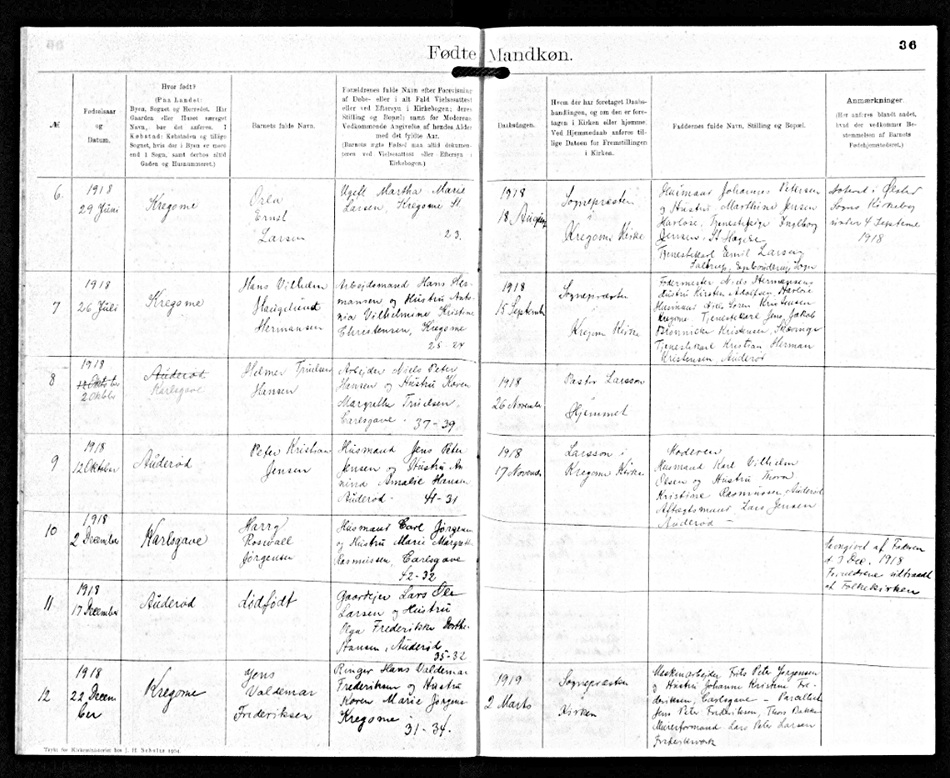 36
Fødte Mandkøn.
№
Fødselsaar
og
Datum.
Hvor født?
(Paa Landet:
Byen, Sognet og Herredet. Har
Gaarden eller Huset særeget
Navn, bør det anføres. I
Købstad: Købstaden og tillige
Sognet, hvis der i Byen er mere
end 1 Sogn, samt derhos altid
Gaden og Husnummeret.)
Barnets fulde Navn.
Forældrenes fulde Navn efter Forevisning
af Døbe- eller i alt Fald Vielsesattest
eller ved Eftersyn i Kirkebogen; deres
Stilling og Bopæl; samt for Moderens
Vedkommende Angivelse af hendes Alder
med det fyldte Aar.
(Barnets ægte Fødsel maa altid dokumen-
teres ved Vielsesattest eller Eftersyn i
Kirkebogen.)
Daabsdagen.
Hvem der har foretaget Daabs-
handlingen, og om den er fore-
tagen i Kirken eller hjemme.
Ved Hjemmedaab anføres til-
lige Datoen for Fremstillingen
i Kirken.
Faddernes fulde Navn, Stilling og Bopæl.
Anmærkninger.
(Her anføres blandt andet,
hvad der vedkommer Be-
stemmelsen af Barnets
Fødehjemstedsret.)
6
1918
29 Juni
Kregome
Orla
Ernst
Larsen
Ugift Martha Marie
Larsen, Kregome St.
23.
1918
18 August
Sognepræsten
i
Kregome Kirke
Husmand Johannes Petersen
og Hustru Marthine Jensen
Harløse, Tjenestepige Ingeborg
Jensen, St. Hagelse
Tjenestekarl Emil Larsen
Sogn
Sogns Kirkebog
under 4 Septembr
1918
7
1918
26 Juli
Kregome
Hans Vilhelm
Haugelund
Hermansen
Arbejdsmand Hans Her-
mansen og Hustru Anto-
nia Vilhelmine Kristine
Christensen, Kregome
25-24
1918
15 September
Sognepræsten
Kregome Kirke
Fodermester Niels Hermansen
Hustru Kirsten Adolfsen, Harløse
Husmand Søren Kristensen
Kregome Tjenestekarl Jens Jakob
Kristensen, Skævinge
Tjenestekarl Kristian Herman
Kristensen, Auderød
8
1918
2 Oktober
Auderød
Karlsgave
Helmer Truelsen
Hansen
Arbejder Niels Peter
Hansen og Hustru Karen
Margrethe Truelsen,
Carlsgave
37-39
1918
26 November
Pastor Larsson
Hjemmet
9
1918
12 Oktober
Auderød
Peter Kristian
Jensen
Husmand Jens Peter
Jensen og Hustru An-
Amalie Hansen
Auderød
41-31
1918
17 November
Larsson i
Kregome Kirke
Moderen
Husmand Karl Vilhelm
Olsen og Hustru Thora
Kristiane Rasmussen, Auderød
Aftægtsmand Lars Jensen
Auderød
10
1918
2 December
Karlsgave
Harry
Rosvall
Jørgensen
Husmand Carl Jørgensen
og Hustru Marie Margrethe
Rasmussen, Carlsgave
42-32
af Faderen
d. 3 Dec. 1918
Forældrene udtraadt
af Folkekirken
11
1918
17 December
Auderød
dødfødt
Gaardejer Lars Ole
Larsen og Hustru
Olga Frederikke Dorthe
Hansen, Auderød
35-32
12
1918
22 Decem
ber
Kregome
Jens
Valdemar
Frederiksen
Ringer Hans Valdemar
Frederiksen og Hustru
Karen Marie Jørgensen
Kregome
31-34.
1919
2 Marts
Sognepræsten
Kirken
Maskinarbejder Frits Peter Jørgensen
og Hustru Johanne Kristine Fre-
deriksen, Carlsgave
Jens Peter Frederiksen,
Murerformand Lars Peter Larsen
Frederiksværk